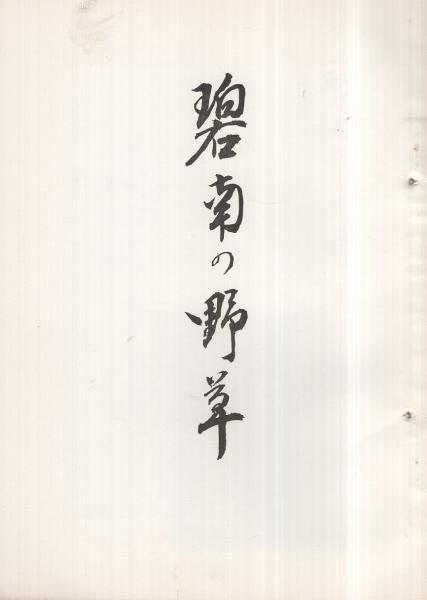 碧南の野草